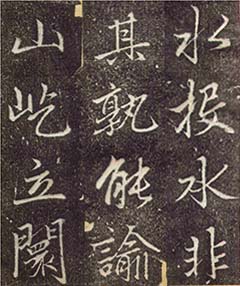 水投水非
其孰能諭
山屹立闤